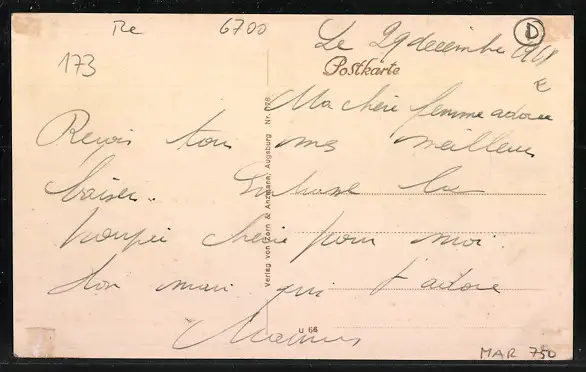 Re 6700 D
173
Le 29 decembre
Postkarte
Ma chère femme adorée
Reçois tous mes meilleurs
baiser.. Embrasse la
poupée chérie pour moi.
Ton mari qui t'adore
Verlag von Zern & Anzmann, Augsburg Nr.
U 66
MAR 750